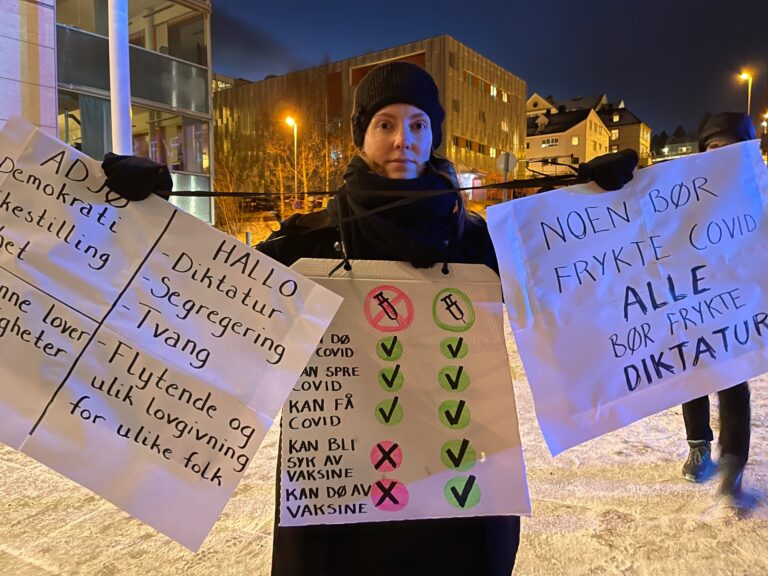 ADJØ
Demokrati
HALLO
- Diktatur
- Segregering
- Tvang
- Flytende og
ulik lovgivning
for ulike folk
DØ
COVID
SPRE
COVID
KAN FÅ
COVID
KAN BLI
SYK AV
VAKSINE
KAN DØ AV
VAKSINE
NOEN BØR
FRYKTE COVID
ALLE
BØR FRYKTE
DIKTATUR